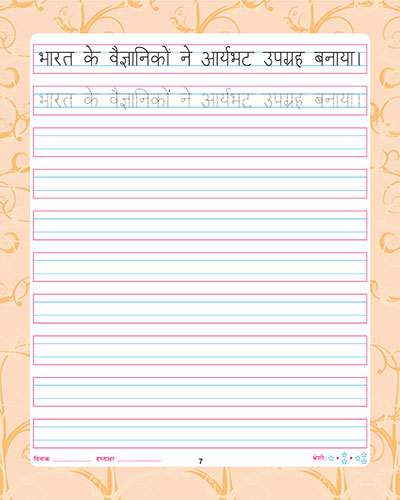 भारत के वैज्ञानिकों ने आर्यभट उपग्रह बनाया।
भारत के वैज्ञानिकों ने आर्यभट उपग्रह बनाया।
दिनांक ........................ हस्ताक्षर ........................ 7 श्रेणी: